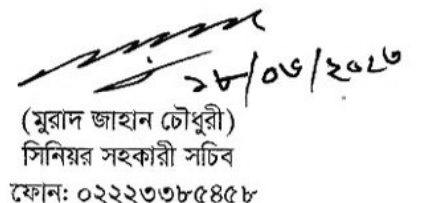 ১৮/০৬/২০২৩
(মুরাদ জাহান চৌধুরী)
সিনিয়র সহকারী সচিব
ফোন: ০২২২৩৩৮৫৪৫৮